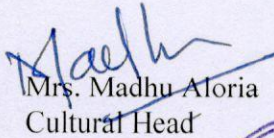 Madhu
Mrs. Madhu Aloria
Cultural Head